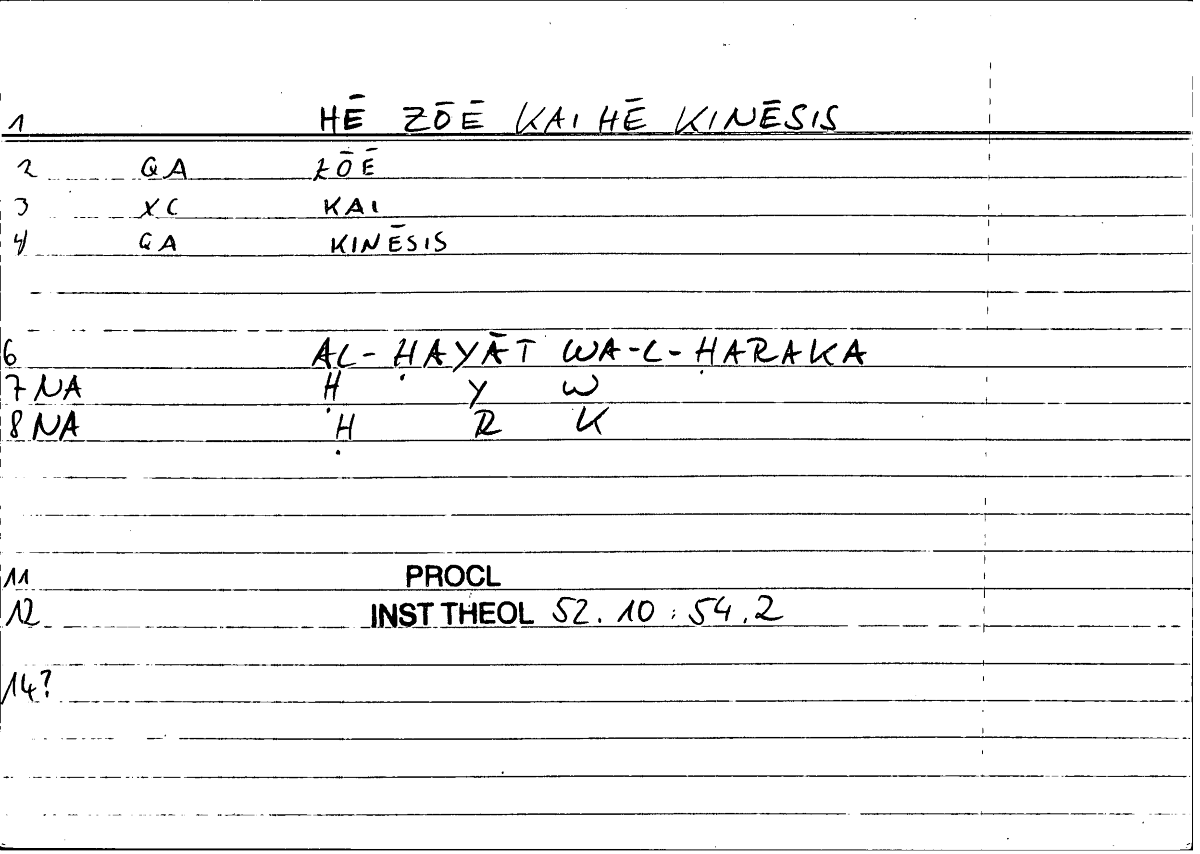 1 HĒ ZŌĒ KAI HĒ KINĒSIS
2 QA ZŌĒ
3 XC KAI
4 QA KINĒSIS
6 AL-ḤAYĀT WA-L-ḤARAKA
7 NA Ḥ Y W
8 NA Ḥ R K
11 PROCL
12 INST THEOL 52.10:54.2
14?